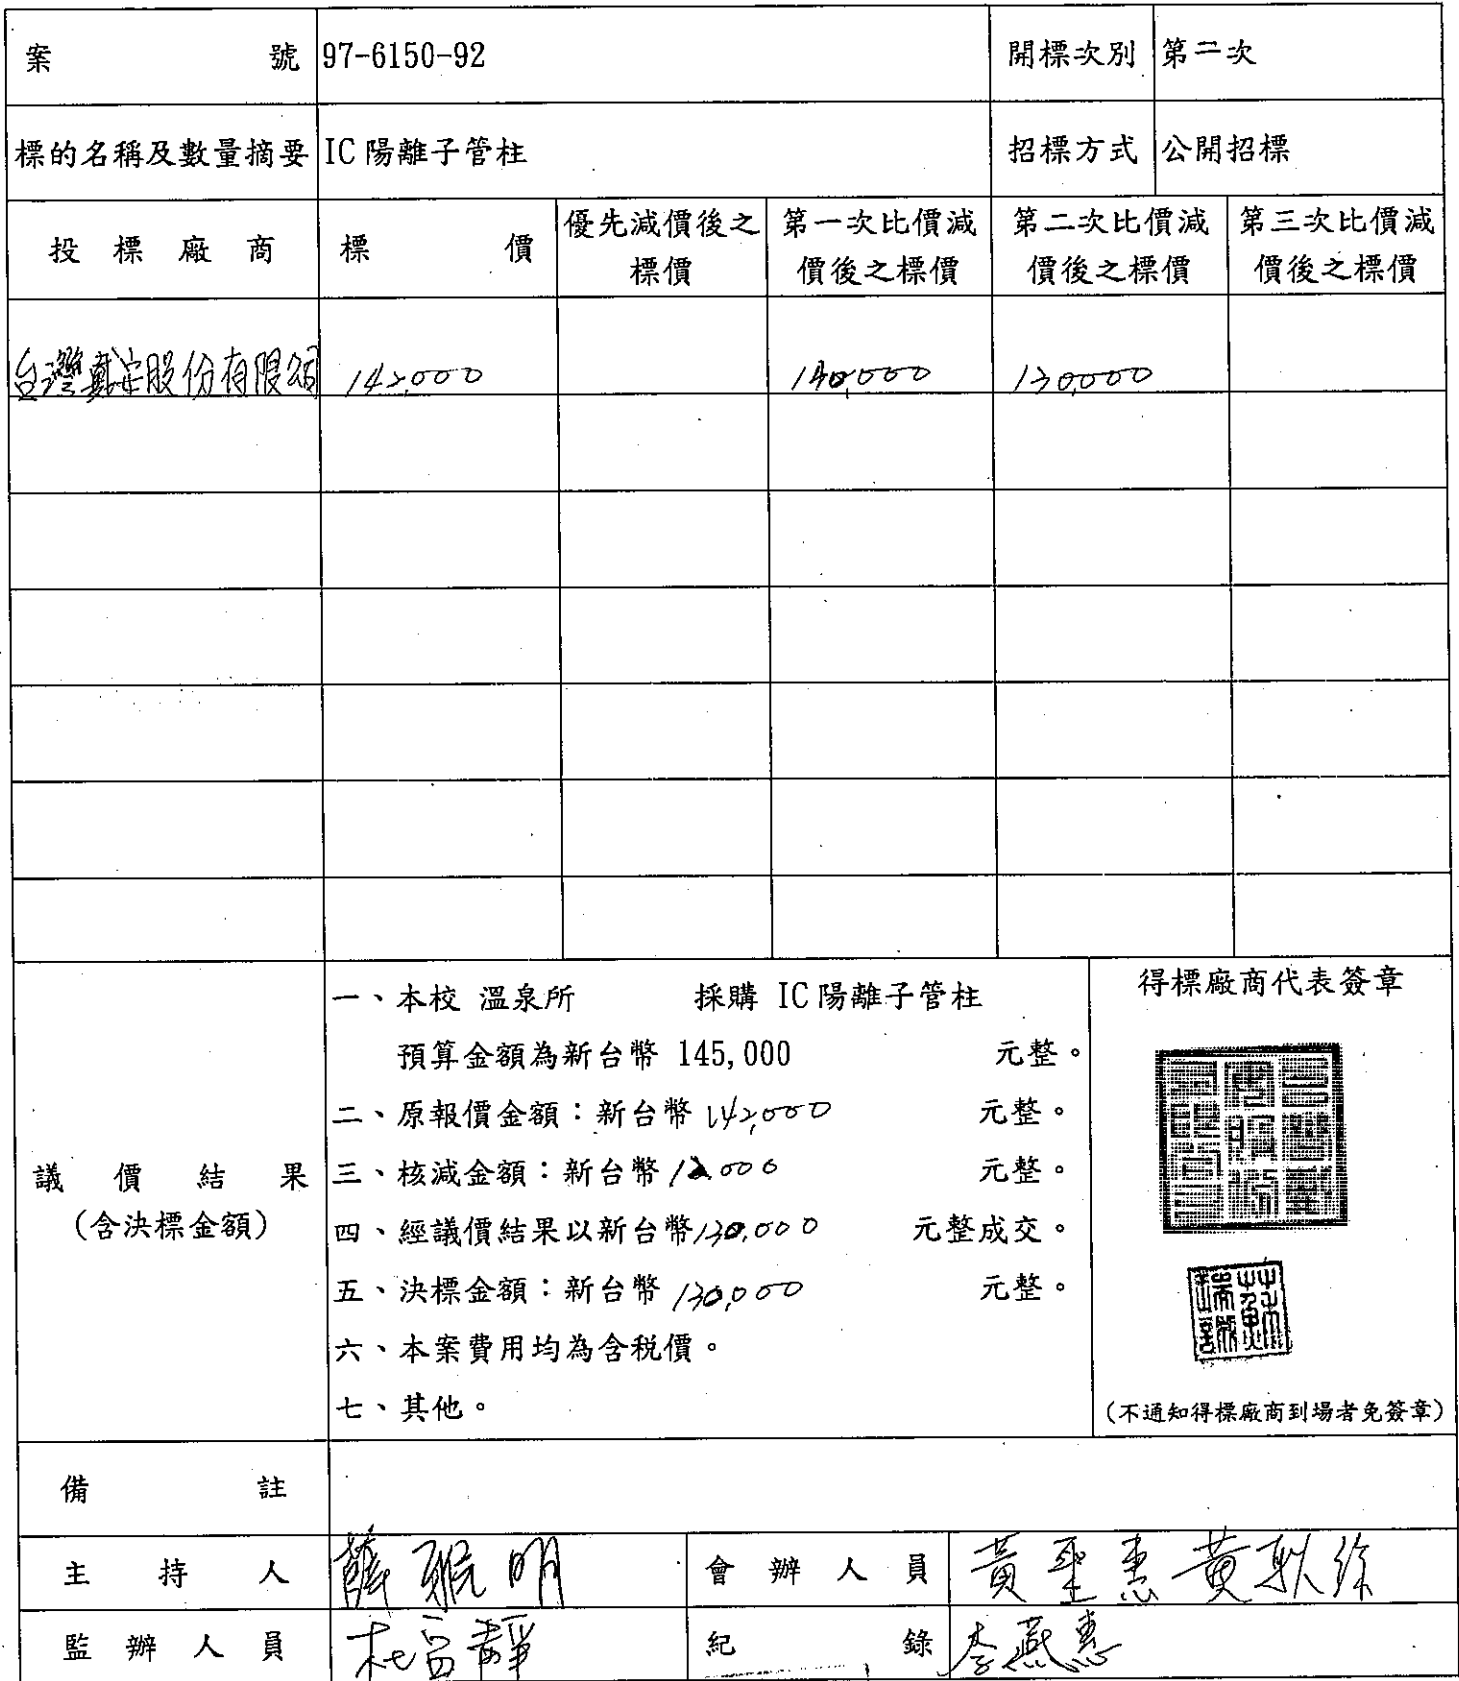 案 號 97-6150-92 開標次別 第二次
標的名稱及數量摘要 IC陽離子管柱 招標方式 公開招標
投標廠商 標價 優先減價後之標價 第一次比價減價後之標價 第二次比價減價後之標價 第三次比價減價後之標價
台灣戴安股份有限公司 142,000 140,000 130,000
議價結果
(含決標金額)
一、本校 溫泉所 採購 IC陽離子管柱
預算金額為新台幣 145,000 元整。
二、原報價金額：新台幣 142,000 元整。
三、核減金額：新台幣 12,000 元整。
四、經議價結果以新台幣 130,000 元整成交。
五、決標金額：新台幣 130,000 元整。
六、本案費用均為含稅價。
七、其他。
得標廠商代表簽章
(不通知得標廠商到場者免簽章)
備註
主持人 明 會辦人員 黃聖惠 黃
監辦人員 杜 靜 紀錄 李燕惠